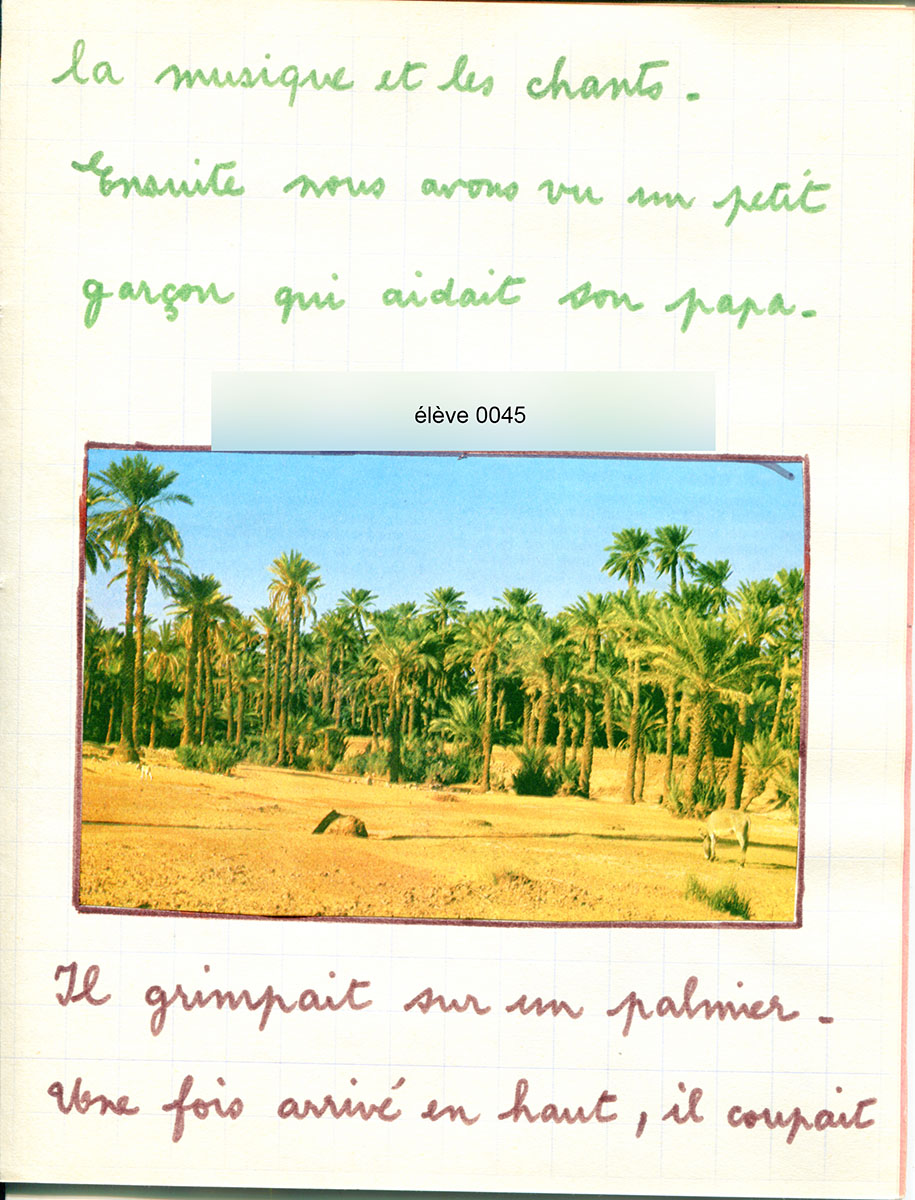 la musique et les chants.
Ensuite nous avons vu un petit
garçon qui aidait son papa.
élève 0045
Il grimpait sur un palmier.
Une fois arrivé en haut, il coupait